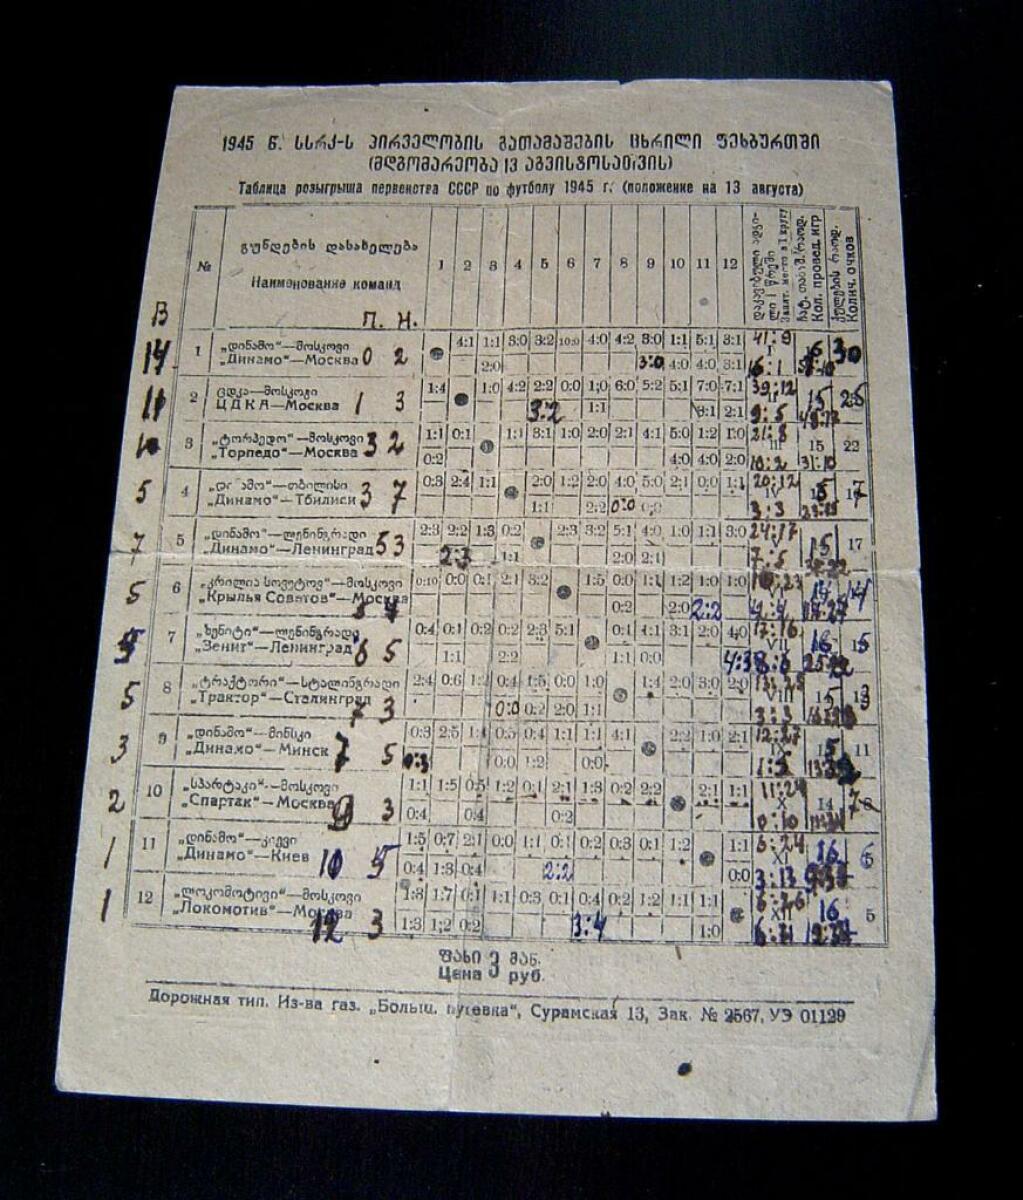 1945 წ. სსრკ-ს პირველობის გათამაშების ცხრილი ფეხბურთში
(მდგომარეობა 13 აგვისტოსათვის)
Таблица розыгрыша первенства СССР по футболу 1945 г. (положение на 13 августа)
№ გუნდების დასახელება 1 2 3 4 5 6 7 8 9 10 11 12
Наименование команд
Кол. провед. игр
Колич. очков
В П. Н.
14 1 „დინამო“—მოსკოვი 4:1 1:1 3:0 3:2 10:0 4:0 4:2 3:0 1:1 5:1 3:1 41:9
„Динамо“—Москва 0 2 2:0 3:0 4:0 4:0 3:1 16:1 30
11 2 ცდკა—მოსკოვი 1:4 1:0 4:2 2:2 0:0 1:0 6:0 5:2 5:1 7:0 7:1 39:12
ЦДКА—Москва 1 3 3:2 1:1 3:1 2:1 9:5 15
10 3 „ტორპედო“—მოსკოვი 1:1 0:1 1:1 3:1 1:0 2:0 2:1 4:1 5:0 1:2 1:0 21:8
„Торпедо“—Москва 3 2 0:2 4:0 4:0 2:0 10:2 III 15 31:10 22
5 4 „დინამო“—თბილისი 0:3 2:4 1:1 2:0 1:2 2:0 4:0 5:0 2:1 0:0 1:1 20:12
„Динамо“—Тбилиси 3 7 1:1 2:2 0:0 0:0 3:3 IV 15
7 5 „დინამო“—ლენინგრადი 2:3 2:2 1:3 0:2 2:3 3:2 5:1 4:0 1:0 1:1 3:0 24:17
„Динамо“—Ленинград 5 3 2:3 1:1 2:0 2:1 7:5 V 15 17
5 6 „კრილია სოვეტოვ“—მოსკოვი 0:10 0:0 0:1 2:1 3:2 1:5 0:0 1:1 1:2 1:0 1:0
„Крылья Советов“—Москва 0:2 2:0 2:2 VI 14
7 „ზენიტი“—ლენინგრადი 0:4 0:1 0:2 0:2 2:3 5:1 0:1 1:1 3:1 2:0 4:0 17:16
„Зенит“—Ленинград 6 5 1:1 2:2 1:1 0:0 4:3 8:6 VII 16 15
5 8 „ტრაქტორი“—სტალინგრადი 2:4 0:6 1:2 0:4 1:5 0:0 1:0 1:4 2:0 3:0 2:0
„Трактор“—Сталинград 7 3 0:0 0:2 2:0 1:1 3:3 VIII 15 13
3 9 „დინამო“—მინსკი 0:3 2:5 1:4 0:5 0:4 1:1 1:1 4:1 2:2 1:0 2:1 12:27
„Динамо“—Минск 7 5 0:3 0:0 1:2 0:0 1:5 IX 15 11
2 10 „სპარტაკი“—მოსკოვი 1:1 1:5 0:5 1:2 0:1 2:1 1:3 0:2 2:2 2:1 1:1 11:24
„Спартак“—Москва 9 3 0:4 0:4 0:2 0:10 X 14
1 11 „დინამო“—კიევი 1:5 0:7 2:1 0:0 1:1 0:1 0:2 0:3 0:1 1:2 1:1 6:24
„Динамо“—Киев 10 5 0:4 1:3 0:4 2:2 0:0 3:13 XI 16
1 12 „ლოკომოტივი“—მოსკოვი 1:3 1:7 0:1 1:1 0:3 0:1 0:4 0:2 1:2 1:1 1:1 6:26
„Локомотив“—Москва 12 3 1:3 1:2 0:2 3:4 1:0 XII 16 5
ფასი 3 მან.
Цена 3 руб.
Дорожная тип. Из-ва газ. „Больш. путевка“, Сурамская 13, Зак. № 2567, УЭ 01129